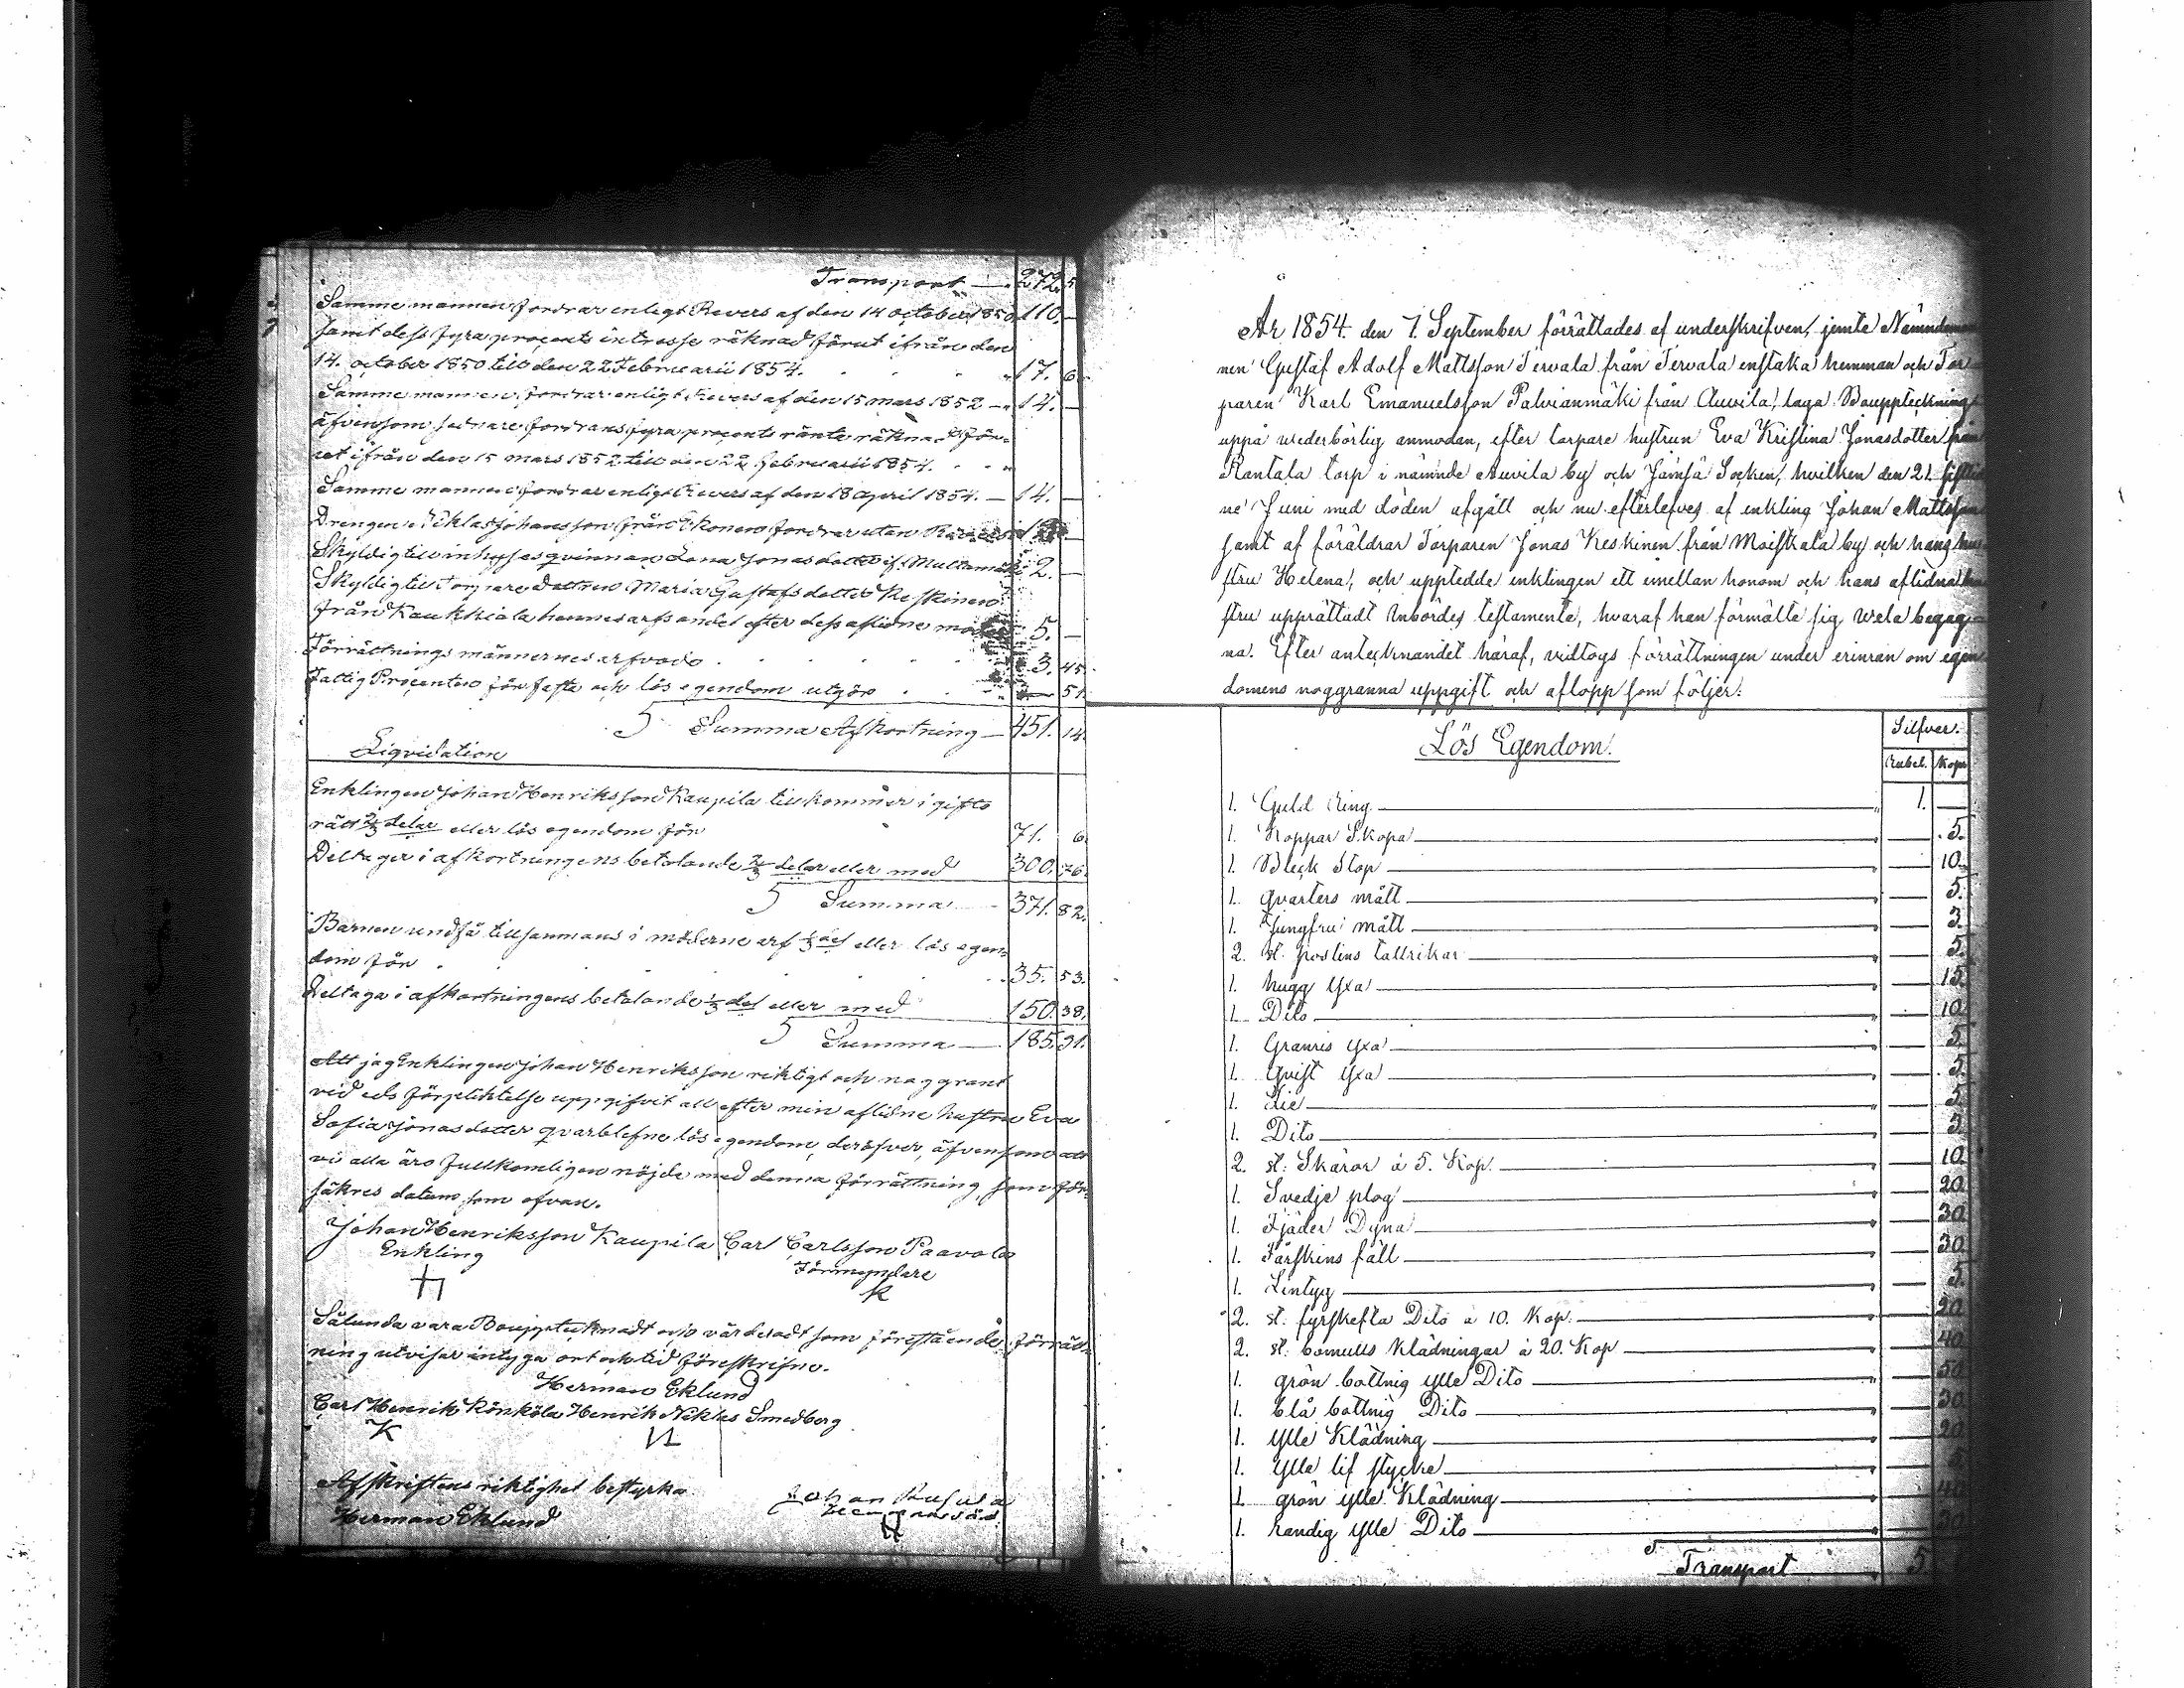 Transport — 272. 5
Samme mannen fordrar enligt Revers af den 14 october 1850 110. —
Jämt dess fyra procents intresse räknad förut ifrån den
14. october 1850 till den 22 Februarii 1854. 17. 6
Samme mannen fordrar enligt Revers af den 15 mars 1852 — 14. —
äfvensom sednare fordrans fyra procents ränta räknad för-
ut ifrån den 15 mars 1852 till den 22 februarii 1854.
Samme mannen fordrar enligt Revers af den 18 april 1854. — 14. —
Drengen Niklas Johansson från Ekonen fordrar utan
Skyldig till inhyses qvinnan Lena Jonasdotter if. Multamäki 2. —
Skyldig till Torpare Dottren Maria Gustafsdotter Keskinen
från Kaukkiala hennes arfs andel efter dess aflidne moder 5. —
Förrättnings männernes arfvode 3. 45.
Fattig Procenten för fasta och lös egendom utgör — 51.
S Summa Afkortning — 451. 14.
Liqvidation
Enklingen Johan Henriksson Kaupila tillkommer i gifto
rätt 2/3 delar eller lös egendom för 71. 6.
Deltager i afkortningens betalande 2/3 delar eller med 300. 76.
S Summa — 371. 82.
Barnen undfå tillsammans i möderne arf 1/3 del eller lös egen-
dom för 35. 53.
Deltaga i afkortningens betalande 1/3 del eller med 150. 38.
S Summa — 185. 91.
Att jag Enklingen Johan Henriksson riktigt och noggrant
vid eds förpliktelse uppgifvit all efter min aflidne hustru Eva
Sofia Jonasdotter qvarblefne lös egendom, deröfver, äfvensom att
vi alla äro fullkomligen nöjde med denna förrättning, som för-
säkres datum som ofvan.
Johan Henriksson Kaupila Carl Carlsson Paavola
Enkling Förmyndare
Sålunda vara Bouppteknadt och värderadt som förestående förrätt-
ning utvisar intyga ort och tid föreskrifne.
Herman Eklund
Carl Henrik Könköla Henrik Niklas Smedberg
Afskriftens riktighet bestyrka
Herman Eklund Johan
År 1854. den 7. September förrättades af underskrifven, jemte Nämndeman
nen Gustaf Adolf Mattsson Tervala från Tervala enstaka hemman och Tor
paren Karl Emanuelsson Palvianmäki från Auvila, laga Bouppteckning
uppå wederbörlig anmodan, efter torpare hustrun Eva Kristina Jonasdotter från
Rantala torp i nämnde Auvila by och Jämsä Socken, hvilken den 21. sistled
ne Juni med döden afgått och nu efterlefves af enkling Johan Mattsson
samt af föräldrar Torparen Jonas Keskinen från Moiskala by och hans hu
stru Helena, och uppledde enklingen ett emellan honom och hans aflidna hu
stru upprättadt Inbördes testamente, hvaraf han förmälte sig wela begag
na. Efter antecknandet häraf, vidtogs förrättningen under erinran om egen
domens noggranna uppgift och aflopp som följer:
Lös Egendom. Silfver.
Rubel. Kop
1. Guld Ring 1. —
1. Koppar Skopa — 5.
1. Bleck Stop — 10.
1. qvarters mått — 5.
1. Jungfru mått — 3.
2. st. poslins tallrikar — 5.
1. hugg yxa — 15.
1. Dito — 10.
1. Granris yxa — 5.
1. Qvist yxa — 5.
1. Lie — 5.
1. Dito — 3.
2. st. Skäror à 5. Kop. — 10.
1. Svedje plog — 20.
1. Fjäder Dyna — 30.
1. Fårskins fäll — 30.
1. Lintyg — 5.
2. st. fyrskefta Dito à 10. Kop. — 20.
2. st. bomulls Klädningar à 20. Kop — 40.
1. grön bottnig ylle Dito — 50.
1. blå bottnig Dito — 30.
1. ylle Klädning — 20.
1. ylle lif stycke — 5
1. grön ylle Klädning — 40.
1. randig ylle Dito — 30.
Transport 5.